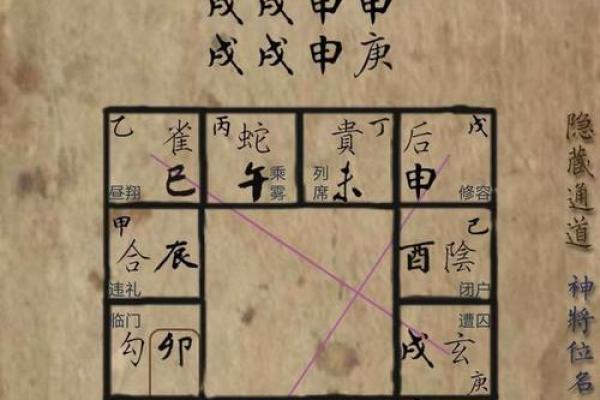 戌 戌 申 申
戌 戌 申 庚
乙 雀
昼翔 巳
丙 蛇
午 乘雾
貴 丁
列席 未
后 戊
申 修容
甲
合 辰
违礼
己
酉 陰
闭户
临门
勾 卯
遭囚
戌 玄
庚
隐藏通道
神將位名